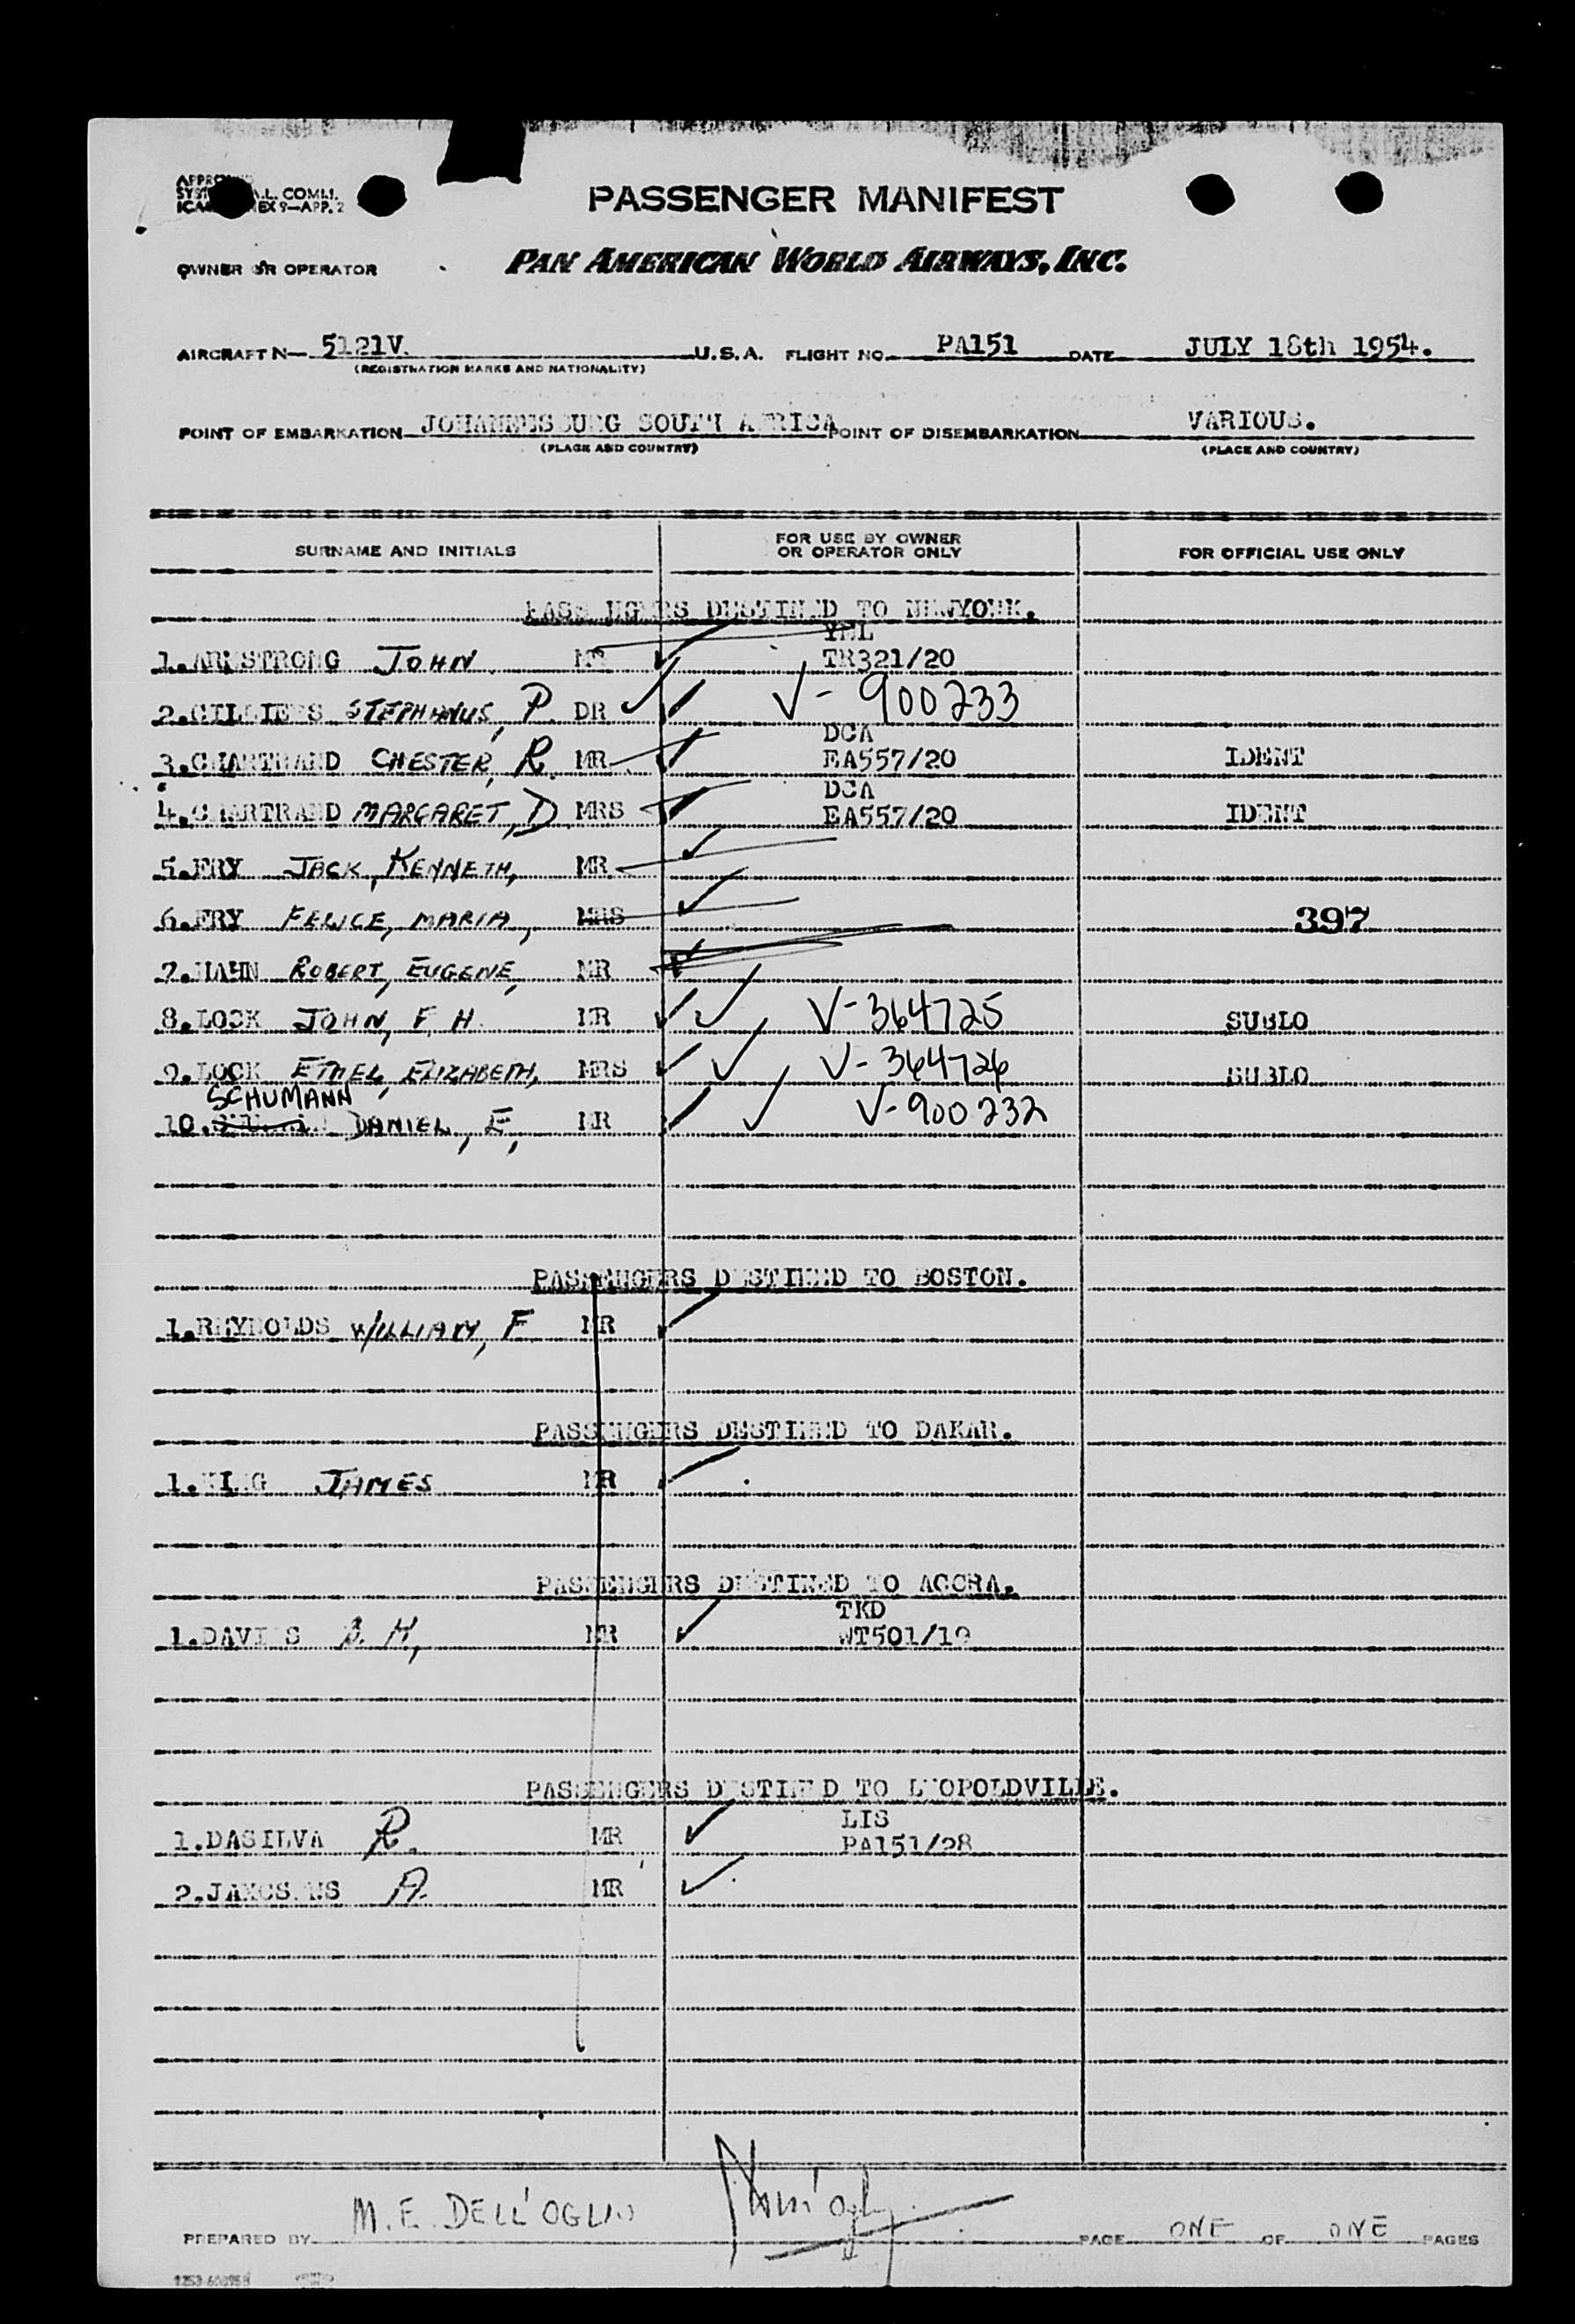 PASSENGER MANIFEST
OWNER OR OPERATOR PAN AMERICAN WORLD AIRWAYS, INC.
AIRCRAFT N— 5121V. U.S.A. FLIGHT NO. PA151 DATE JULY 18th 1954.
(REGISTRATION MARKS AND NATIONALITY)
POINT OF EMBARKATION JOHANNESBURG SOUTH AFRICA POINT OF DISEMBARKATION VARIOUS.
(PLACE AND COUNTRY) (PLACE AND COUNTRY)
SURNAME AND INITIALS FOR USE BY OWNER OR OPERATOR ONLY FOR OFFICIAL USE ONLY
PASSENGERS DESTINED TO NEWYORK.
1.ARMSTRONG JOHN MR TR321/20
2.CILLIERS STEPHANUS, P. DR V- 900233
DCA
3.CHARTRAND CHESTER, R. MR EA557/20 IDENT
DCA
4.CHARTRAND MARGARET, D MRS EA557/20 IDENT
5.FRY JACK, KENNETH, MR
6.FRY FELICE, MARIA, MRS 397
7.HAHN ROBERT, EUGENE, MR
8.LOCK JOHN, F. H. MR V-364725 SUBLO
9.LOCK ETHEL, ELIZABETH, MRS V-364726 SUBLO
SCHUMANN
10. DANIEL, E, MR V-900232
PASSENGERS DESTINED TO BOSTON.
1.REYNOLDS WILLIAM, F MR
PASSENGERS DESTINED TO DAKAR.
1.KING JAMES MR
PASSENGERS DESTINED TO ACCRA.
TKD
1.DAVIES B. H, MR WT501/19
PASSENGERS DESTINED TO LEOPOLDVILLE.
LIS
1.DASILVA R. MR PA151/28
2. A. MR
PREPARED BY M. E. DELL'OGLIO PAGE ONE OF ONE PAGES